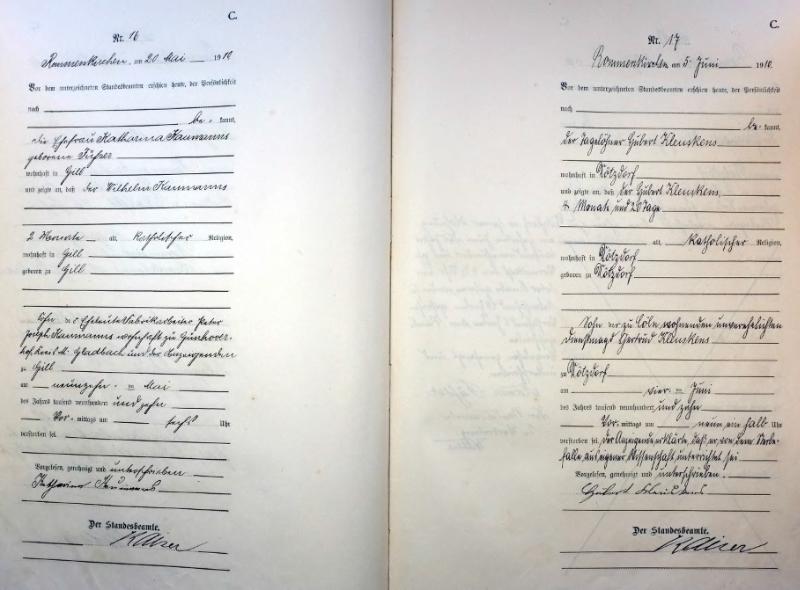 C.
Nr. 16
Rommerskirchen, am 20 Mai 1910
Vor dem unterzeichneten Standesbeamten erschien heute, der Persönlichkeit
nach
be- kannt,
die Ehefrau Katharina Kaumanns
geborene
wohnhaft in Gill
und zeigte an, daß der Wilhelm Kaumanns
2 Monate alt, katholischer Religion,
wohnhaft in Gill
geboren zu Gill
Sohn der Eheleute Fabrikarbeiter Peter
Joseph Kaumanns wohnhaft zu
Kreis M. Gladbach und der Anzeigenden
zu Gill
am neunzehn- Mai
des Jahres tausend neunhundert und zehn
Vor- mittags um sechs Uhr
verstorben sei.
Vorgelesen, genehmigt und unterschrieben
Katharina Kaumanns
Der Standesbeamte.
C.
Nr. 17
Rommerskirchen am 5. Juni 1910.
Vor dem unterzeichneten Standesbeamten erschien heute, der Persönlichkeit
nach
be- kannt,
der Tagelöhner Hubert Klenskens
wohnhaft in
und zeigte an, daß der Hubert Klenskens
Monate und 20 Tage
alt, katholischer Religion,
wohnhaft in
geboren zu
Sohn der zu Cöln wohnenden unverehelichten
Dienstmagd Gertrud Klenskens
zu
am vier- Juni
des Jahres tausend neunhundert und zehn
Vor- mittags um neun ein halb Uhr
verstorben sei. Der Anzeigende erklärte, daß er von dem Sterbe-
falle aus eigener Wissenschaft unterrichtet sei
Vorgelesen, genehmigt und unterschrieben.
Hubert Klenskens
Der Standesbeamte.